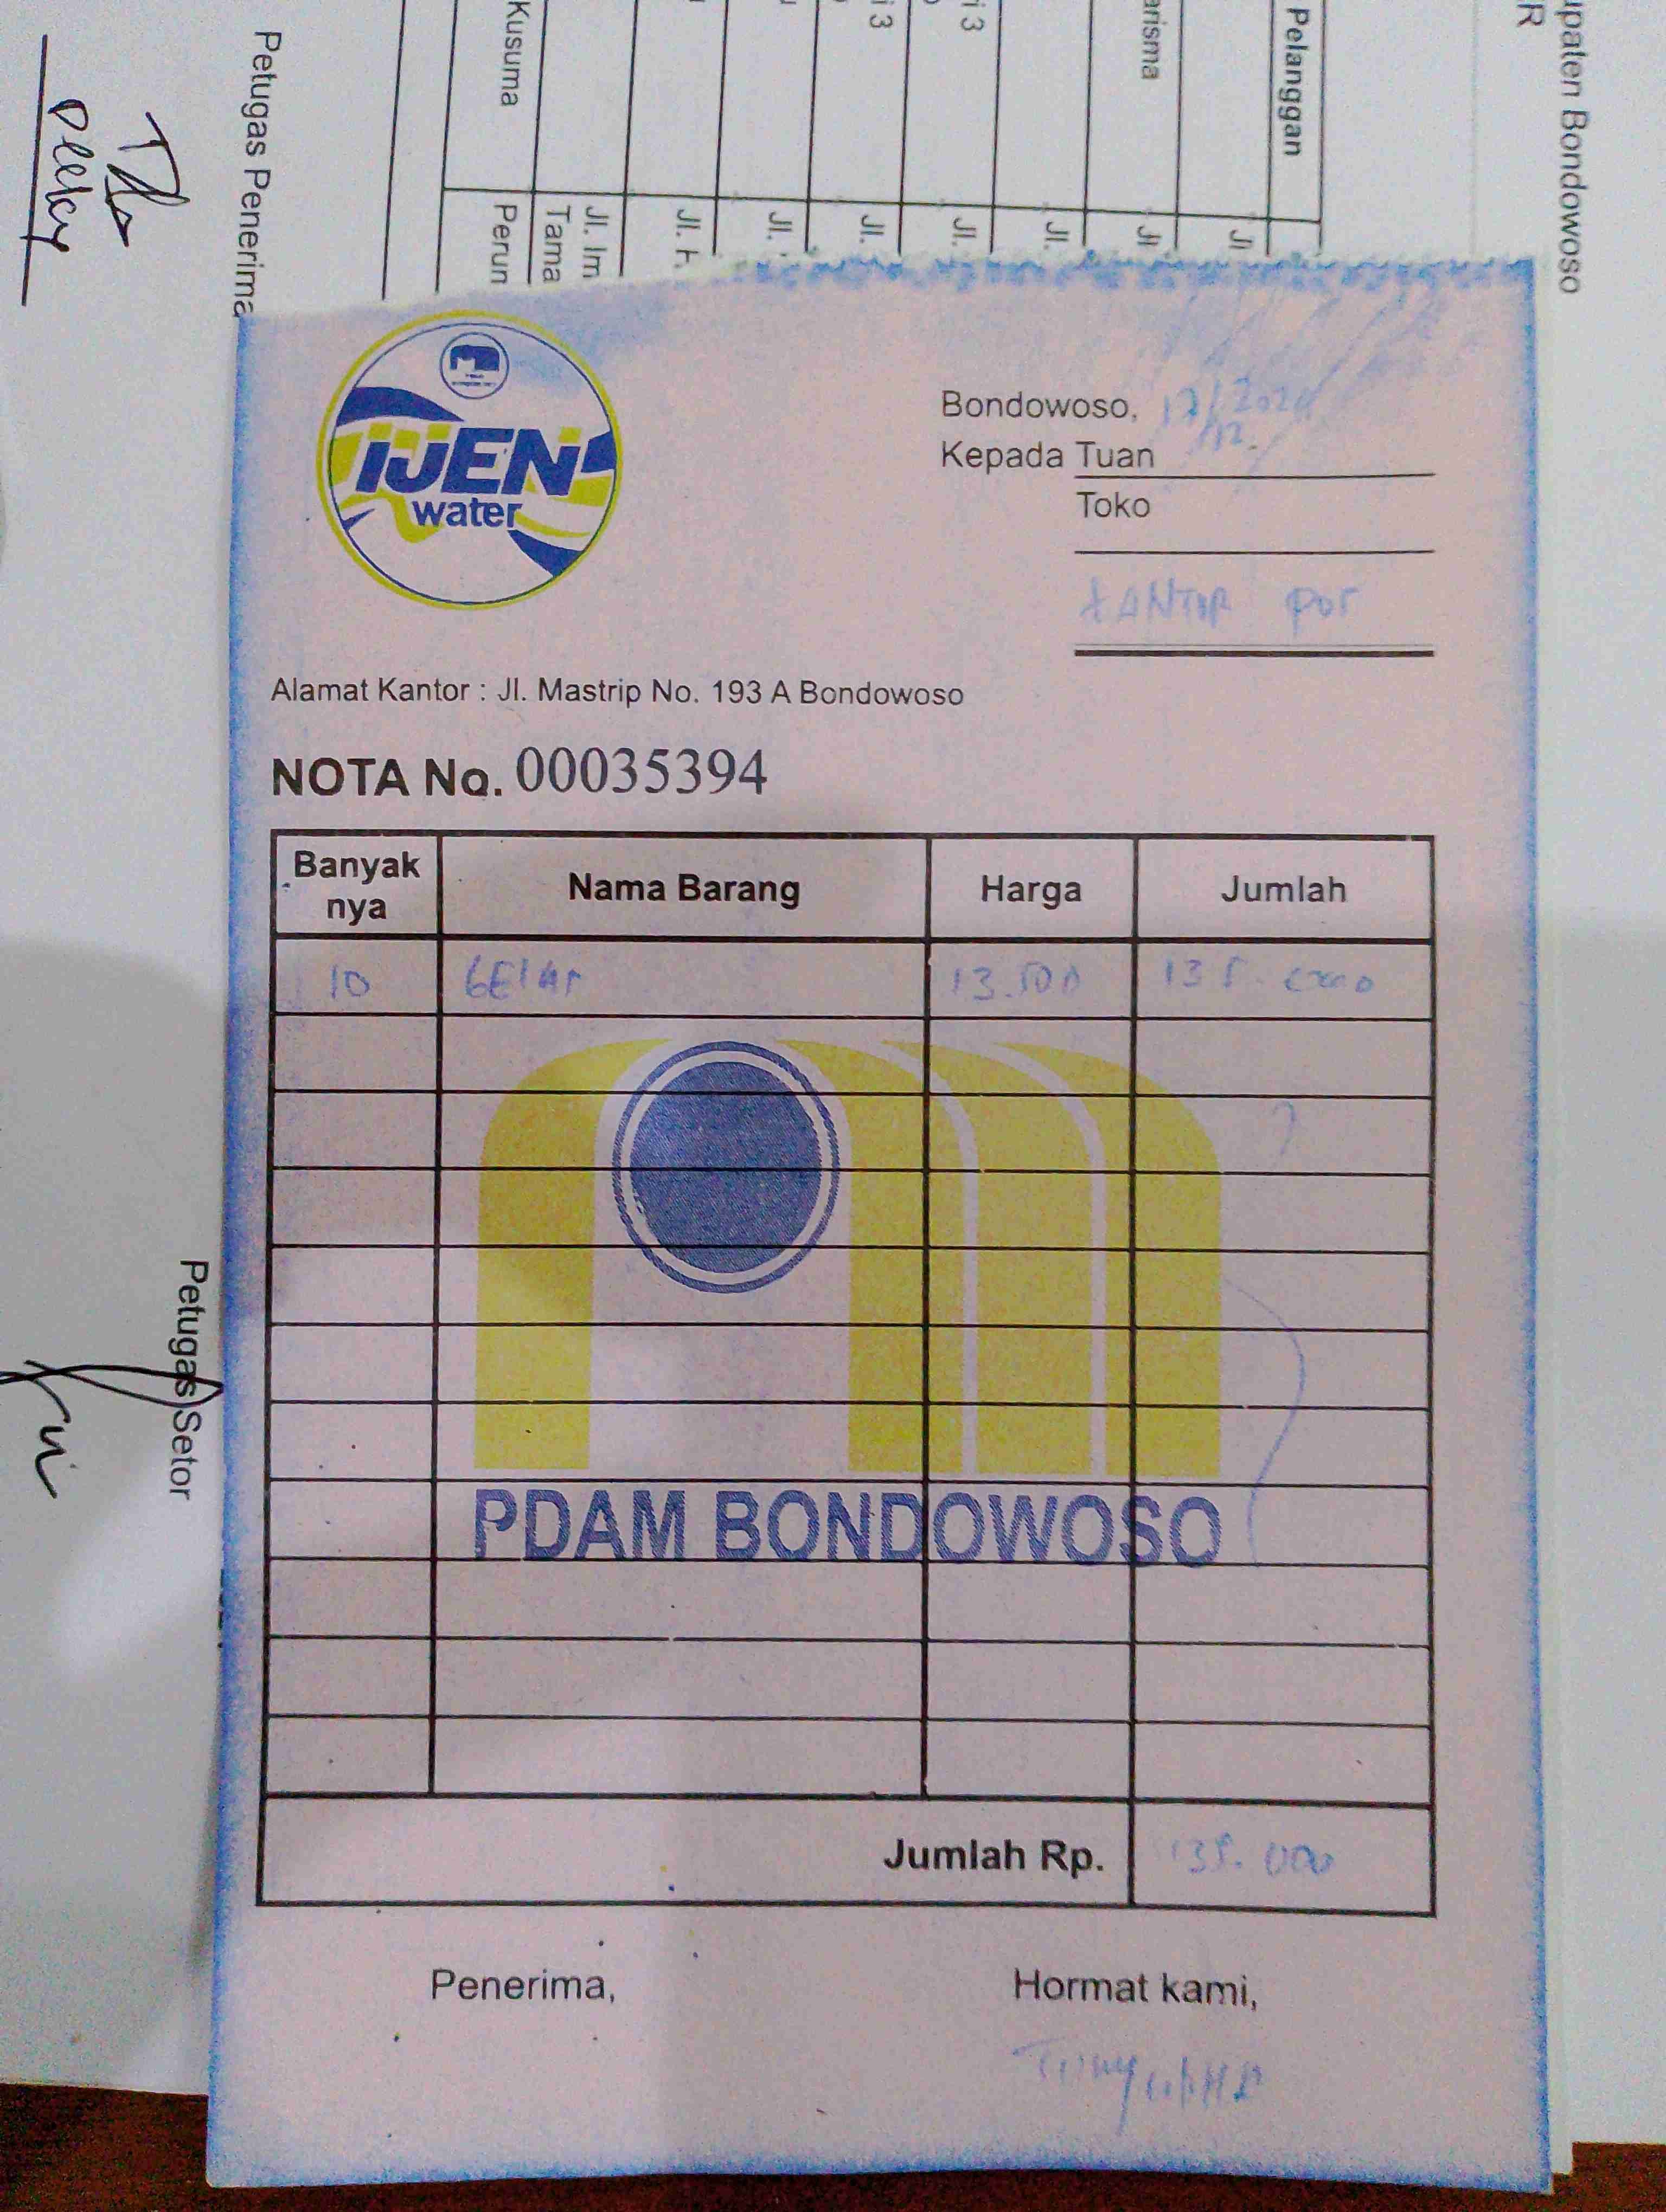 upaten Bondowoso
R
Pelanggan
arisma
i 3
i 3
Kusuma
Jl
Jl
Jl.
Jl.
Jl.
Jl.
Jl. H.
Jl. Im
Tama
Perun
Petugas Penerima
Petugas Setor
IJEN
water
Bondowoso, 17/12
Kepada Tuan
Toko
KANTOR
Alamat Kantor : Jl. Mastrip No. 193 A Bondowoso
NOTA No. 00035394
Banyak nya Nama Barang Harga Jumlah
10 13.500 135.000
PDAM BONDOWOSO
Jumlah Rp. 135.000
Penerima, Hormat kami,